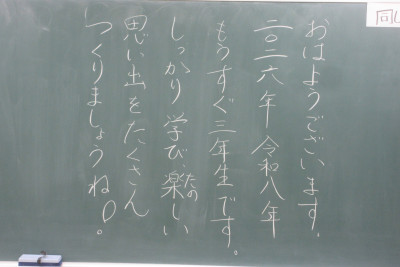 おはようございます。
二〇二六年 令和八年
もうすぐ三年生です。
しっかり学び、楽しい
たの
思い出をたくさん
つくりましょうね。